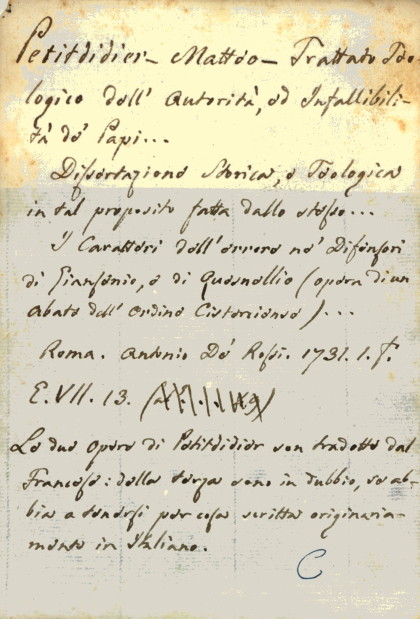 Petitdidier - Matteo - Trattato Teo-
logico dell' Autorità, ed Infallibili-
tà de' Papi...
Dissertazione Storica, e Teologica
in tal proposito fatta dallo stesso...
I Caratteri dell'errore ne' Difensori
di Giansenio, e di Quesnellio (opera di un
Abate dell' Ordine Cisterciense)...
Roma. Antonio De' Rossi. 1731. 1. f.
E. VII. 13.
Le due opere di Petitdidier son tradotte dal
Francese: della terza sono in dubbio, se ab-
bia a tenersi per cosa scritta originaria-
mente in Italiano.
C